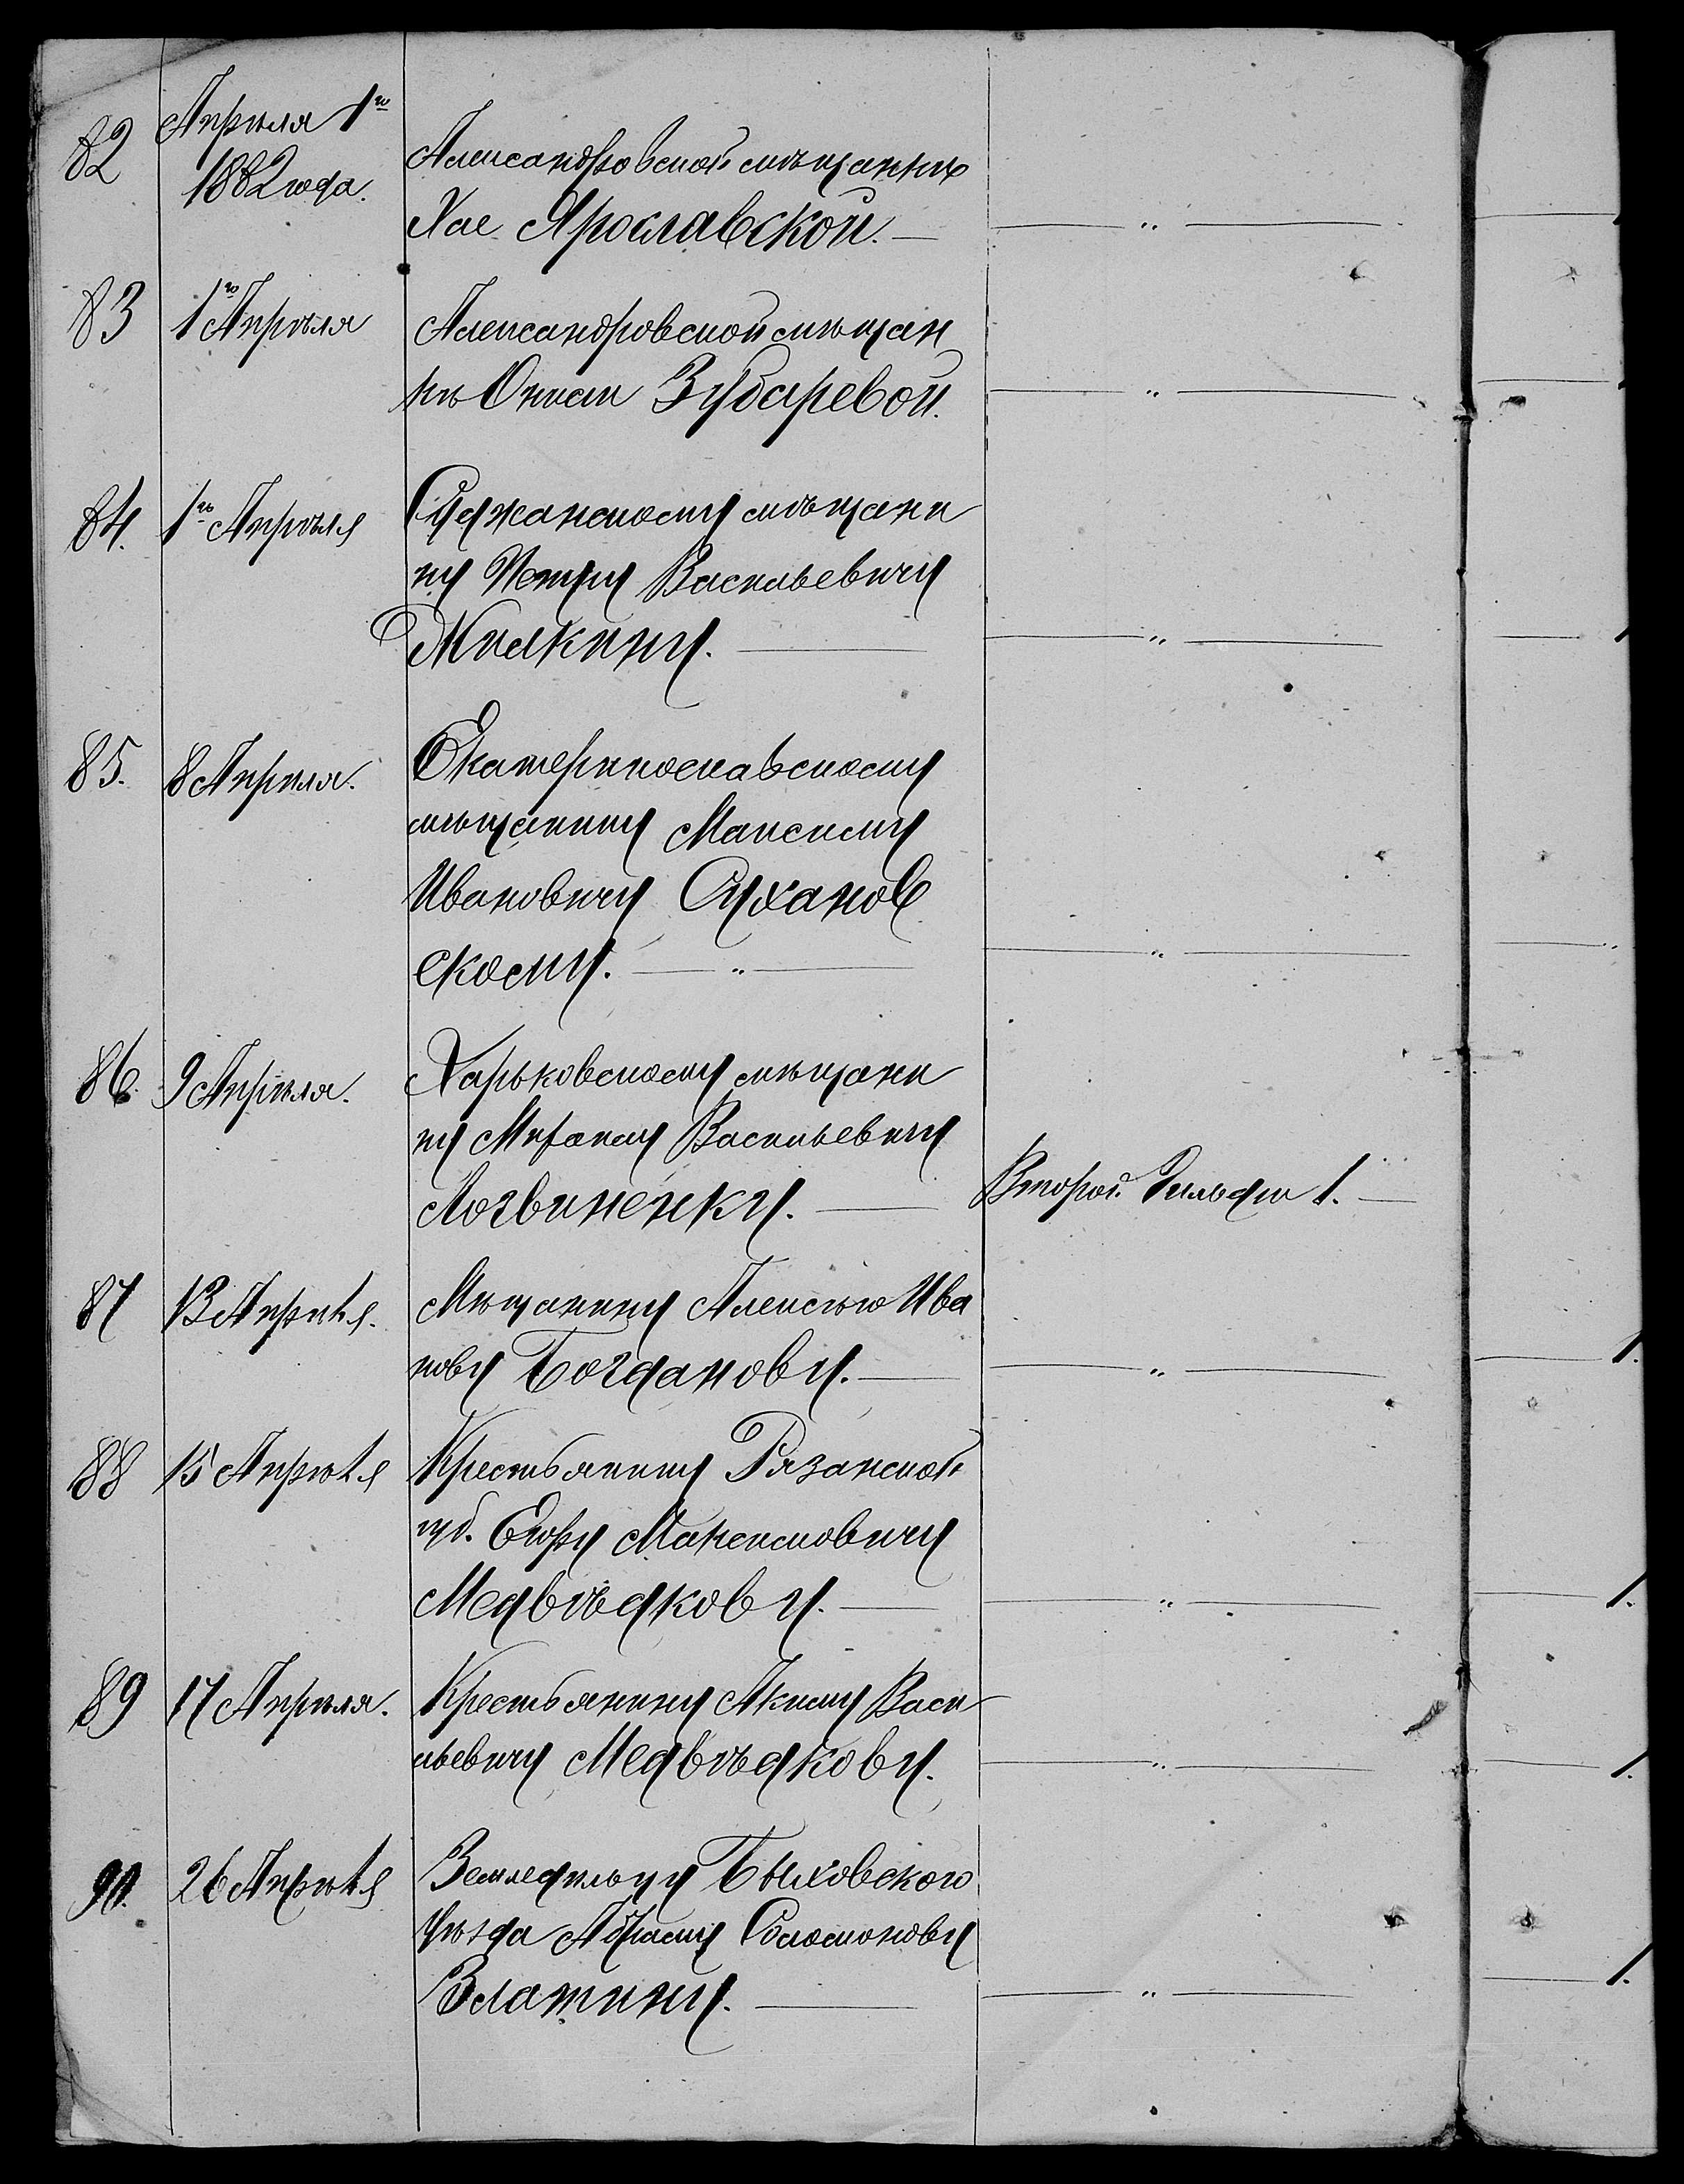 82 Апрѣля 1го
1882 года.
Александровской мѣщанкѣ
Хае Ярославской. — — " —
83 1го Апрѣля Александровской мѣщан
кѣ Зубаревой. — " —
84. 1го Апрѣля Суджанскому мѣщани
ну Петру Васильевичу
Жилкину. — — " —
85. 8 Апрѣля. Екатеринославскому
мѣщанину Максиму
Ивановичу Суханов
скому. — " — — " —
86. 9 Апрѣля. Харьковскому мѣщани
ну Васильевичу
Логвиненку. — Второй Гильдіи 1. —
87 13 Апрѣля. Мѣщанину Алексѣю Ива
нову Богданову. — — " — — 1.
88 15 Апрѣля Крестьянину Рязанской
губ. Егору Максимовичу
Медвѣдкову. — — " — — 1.
89 17 Апрѣля. Крестьянину Акиму Васи
льевичу Медвѣдкову. — " — — 1.
90. 26 Апрѣля Земледѣльцу Быховского
Уѣзда Абраму Соломонову
Златкину. — — " — — 1.